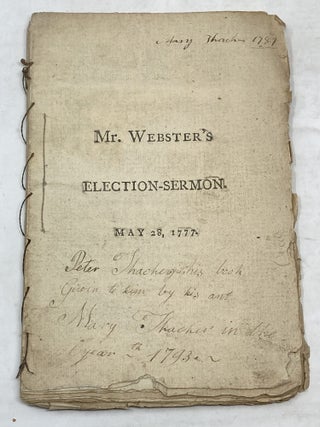 Mary Thacher 1789
Mr. Webster's
ELECTION-SERMON.
MAY 28, 1777.
Peter Thacher his book
Given to him by his ant
Mary Thacher in the
year 1793